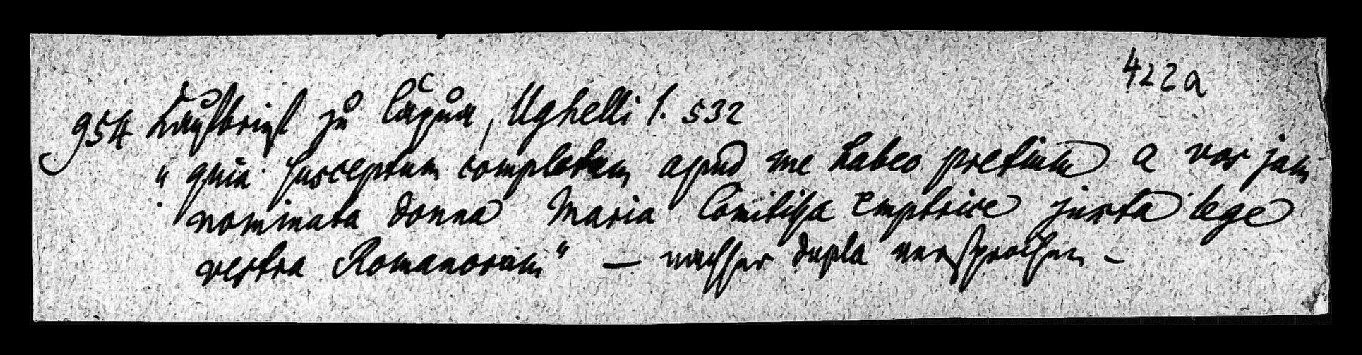 422a
954 Kaufbrief zu Capua, Ughelli 1. 532
"quia susceptum completum apud me habeo pretium a vos jam
nominata donna Maria Comitissa emptrice juxta lege
vestra Romanorum" — nachher dupla versprochen -